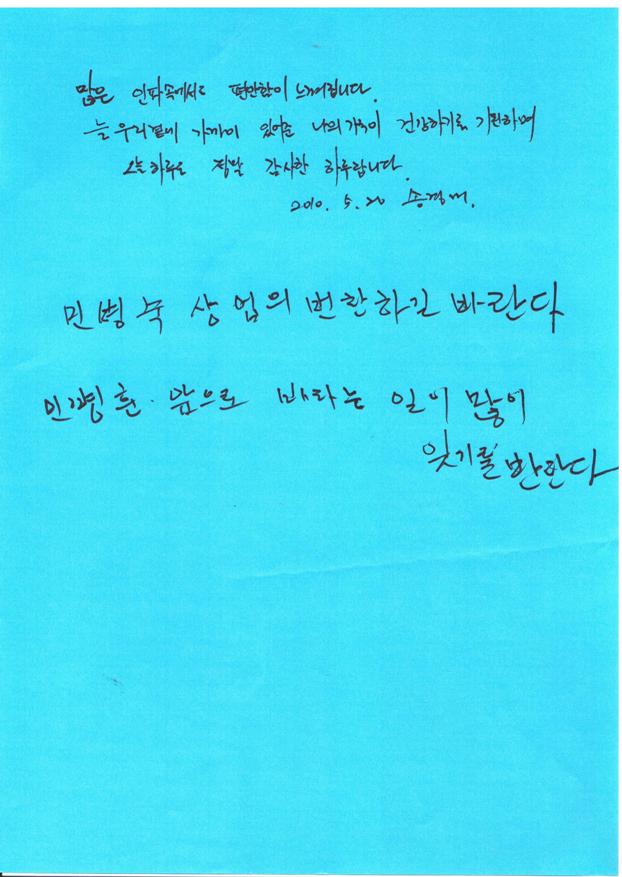 많은 인파속에서도 편안함이 느껴집니다.
늘 우리곁에 가까이 있어준 나의 가족이 건강하기를 기원하며
오늘 하루도 정말 감사한 하루랍니다.
2010. 5. 20
민병숙 상업의 번란하길 바란다
민병훈. 앞으로 바라는 일이 많이
잇기를 반란다